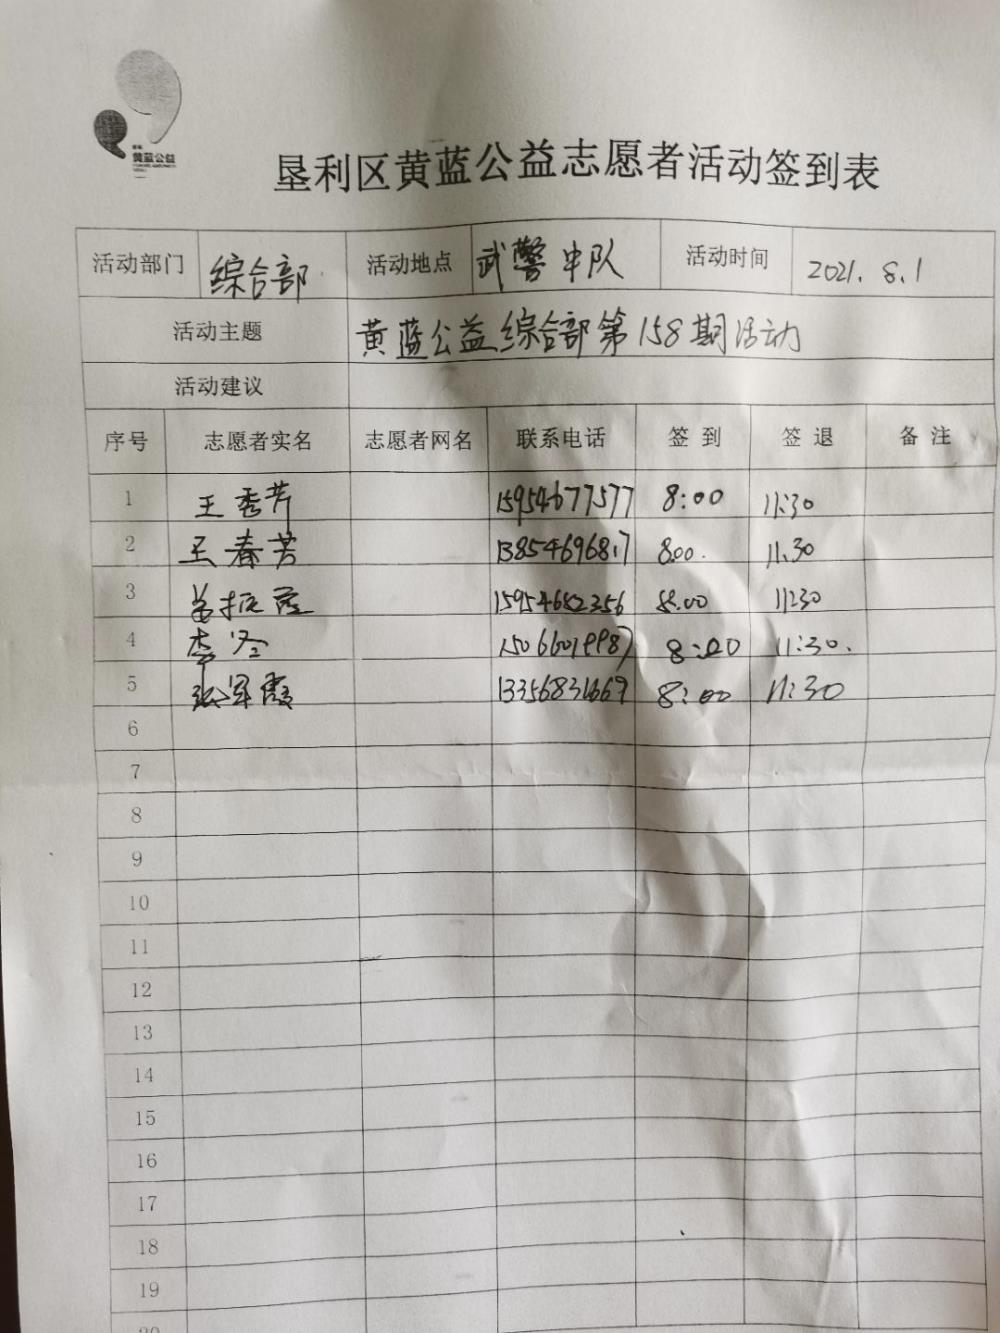 黄蓝公益
垦利区黄蓝公益志愿者活动签到表
活动部门 综合部 活动地点 武警中队 活动时间 2021.8.1
活动主题 黄蓝公益综合部第158期活动
活动建议
序号 志愿者实名 志愿者网名 联系电话 签到 签退 备注
1 王秀芹 15954677577 8:00 11:30
2 王春芳 13854696817 8:00. 11.30
3 15954682356 8:00 11:30
4 李冬 15066019987 8:00 11:30.
5 张军霞 13356831669 8:00 11:30
6
7
8
9
10
11
12
13
14
15
16
17
18
19
20